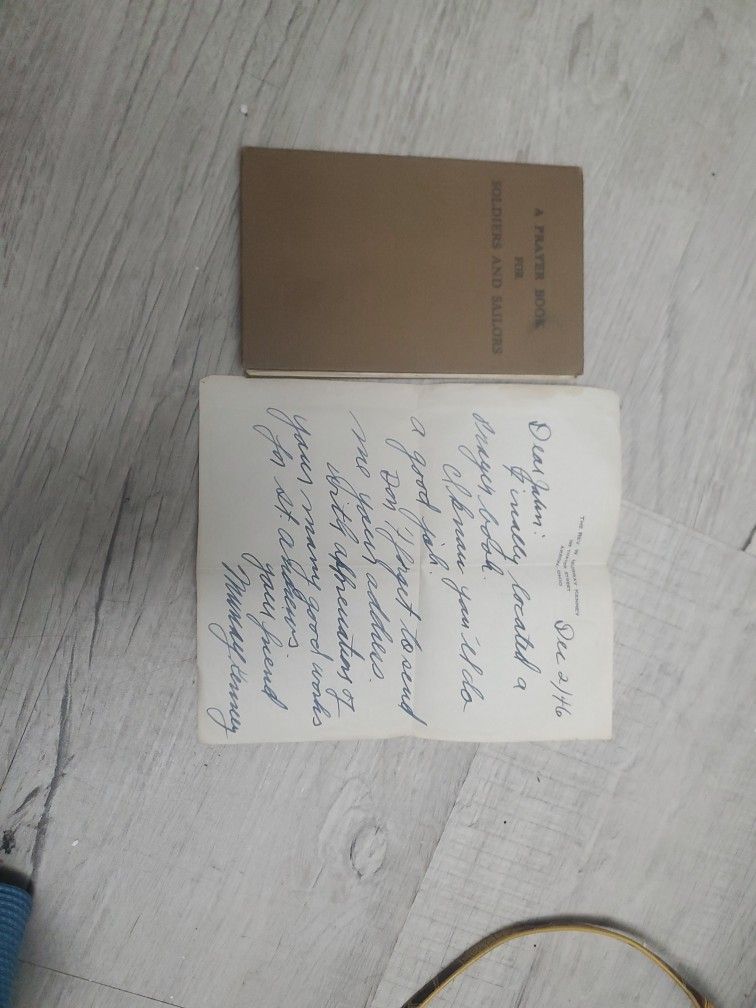 A PRAYER BOOK
FOR
SOLDIERS AND SAILORS
THE REV. W. MURRAY KENNEY
AKRON, OHIO
Dec 2/46
Dear John:
Finally located a
prayer book.
I know you'll do
a good job.
Don't forget to send
me your address.
With appreciation of
your many good works
for St Andrews
your friend
Murray Kenney